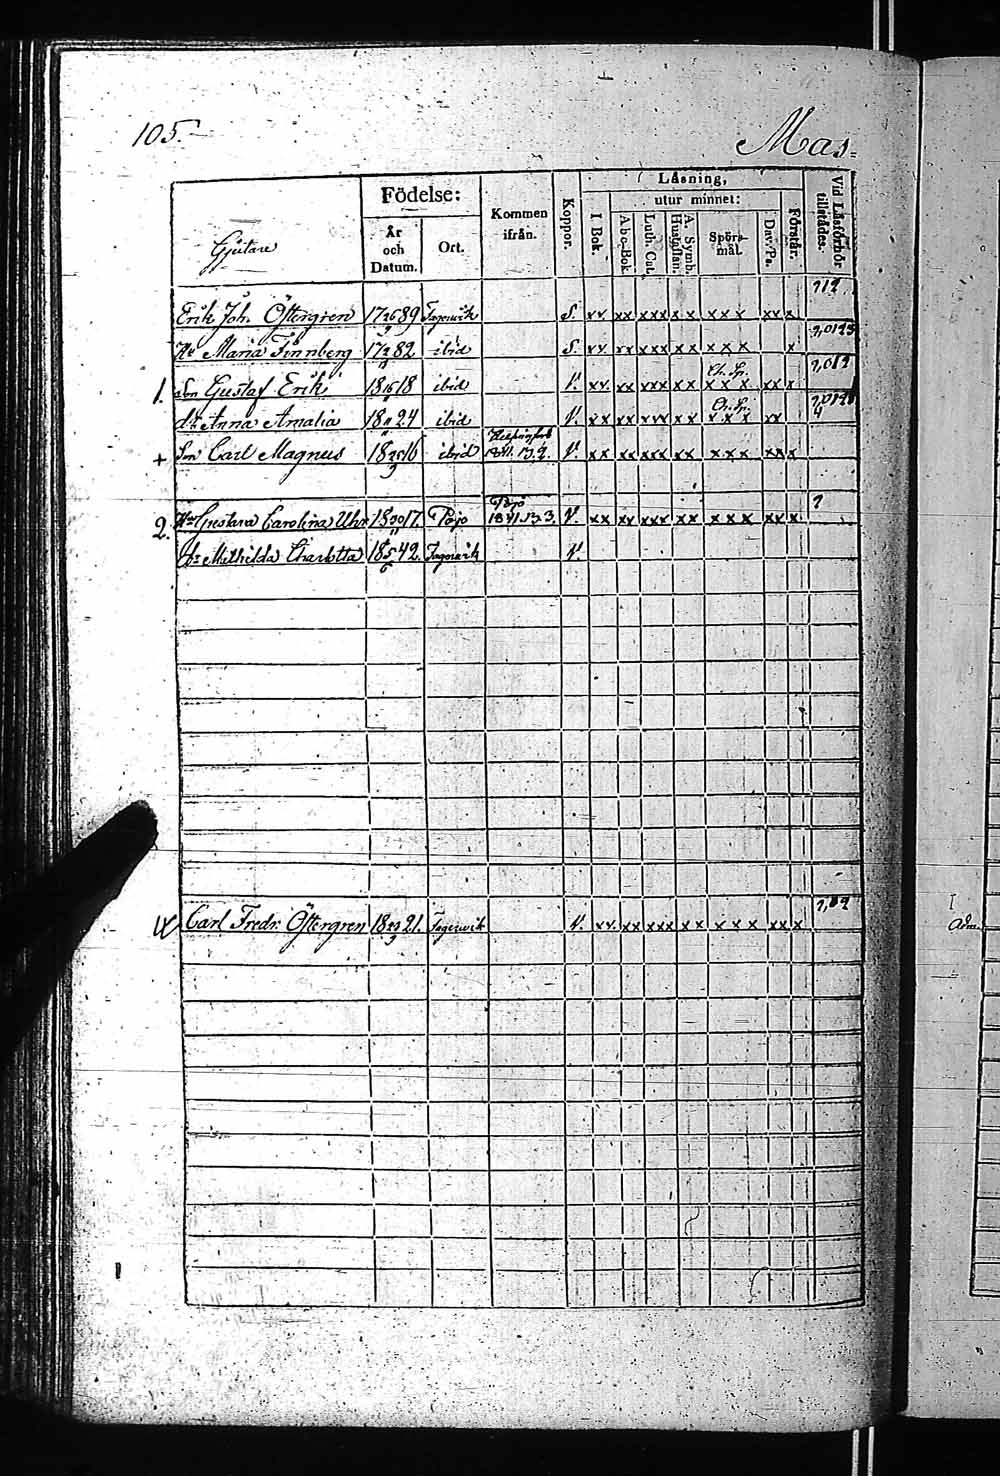 105.
Mas=
Gjutare
Födelse:
År och Datum.
Ort.
Kommen ifrån.
Koppor.
Läsning,
I Bok.
utur minnet:
Abo-Bok.
Luth. Cat.
A. Symb. Hustaflan.
Spörs-mål.
Dav. Ps.
Förstår.
Vid Läsförhör tillstädes.
Erik Joh. Östergren 17 26 89 Fagervik S. xx xx xxx x x x x x xx x
Hu Maria Finnberg 17 2 82 ibid S. xx xx xxx x x x x x x
1. Son Gustaf Erik 18 16 18 ibid V. xx xx xxx xx x x x xx x
dr Anna Amalia 18 24 ibid V. xx xx xxx xx x x x xx
+ Son Carl Magnus 18 25 16 9 ibid 1841. V. xx xx xxx xx x x x xx x
2. Hu Gustava Carolina Uhr 18 30 17. Pojo Pojo 1841. V. xx xx xxx xx x x x xx x
Dr Mathilda Charlotta 18 5 42. 6 Fagervik V.
Carl Fredr. Östergren 18 29 21. 9 Fagervik V. xx xx xxx xx x x x xx x
Adm.